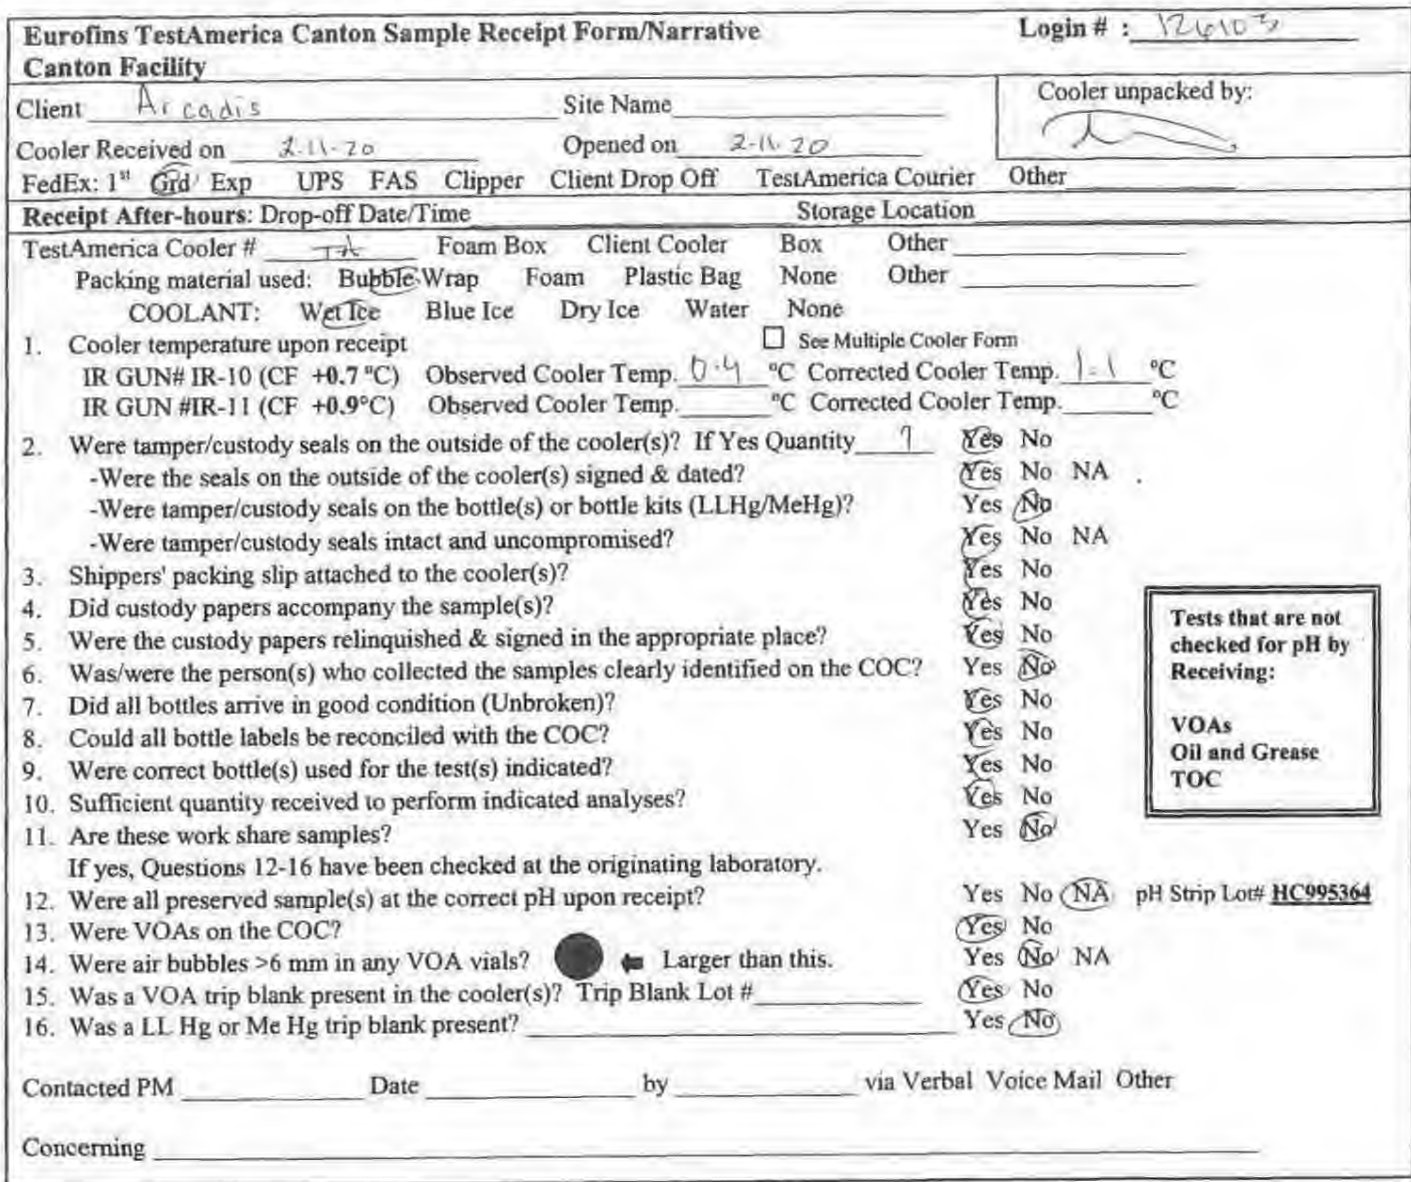 Eurofins TestAmerica Canton Sample Receipt Form/Narrative Login # : 126103
Canton Facility
Client Arcadis Site Name Cooler unpacked by:
Cooler Received on 2-11-20 Opened on 2-11-20
FedEx: 1st Grd Exp UPS FAS Clipper Client Drop Off TestAmerica Courier Other
Receipt After-hours: Drop-off Date/Time Storage Location
TestAmerica Cooler # TA Foam Box Client Cooler Box Other
Packing material used: Bubble Wrap Foam Plastic Bag None Other
COOLANT: Wet Ice Blue Ice Dry Ice Water None
1. Cooler temperature upon receipt ☐ See Multiple Cooler Form
IR GUN# IR-10 (CF +0.7 °C) Observed Cooler Temp. 0.4 °C Corrected Cooler Temp. 1.1 °C
IR GUN #IR-11 (CF +0.9°C) Observed Cooler Temp. °C Corrected Cooler Temp. °C
2. Were tamper/custody seals on the outside of the cooler(s)? If Yes Quantity Yes No
-Were the seals on the outside of the cooler(s) signed & dated? Yes No NA
-Were tamper/custody seals on the bottle(s) or bottle kits (LLHg/MeHg)? Yes No
-Were tamper/custody seals intact and uncompromised? Yes No NA
3. Shippers' packing slip attached to the cooler(s)? Yes No
4. Did custody papers accompany the sample(s)? Yes No
5. Were the custody papers relinquished & signed in the appropriate place? Yes No
6. Was/were the person(s) who collected the samples clearly identified on the COC? Yes No
7. Did all bottles arrive in good condition (Unbroken)? Yes No
8. Could all bottle labels be reconciled with the COC? Yes No
9. Were correct bottle(s) used for the test(s) indicated? Yes No
10. Sufficient quantity received to perform indicated analyses? Yes No
11. Are these work share samples? Yes No
If yes, Questions 12-16 have been checked at the originating laboratory.
Tests that are not
checked for pH by
Receiving:
VOAs
Oil and Grease
TOC
12. Were all preserved sample(s) at the correct pH upon receipt? Yes No NA pH Strip Lot# HC995364
13. Were VOAs on the COC? Yes No
14. Were air bubbles >6 mm in any VOA vials? Larger than this. Yes No NA
15. Was a VOA trip blank present in the cooler(s)? Trip Blank Lot # Yes No
16. Was a LL Hg or Me Hg trip blank present? Yes No
Contacted PM Date by via Verbal Voice Mail Other
Concerning